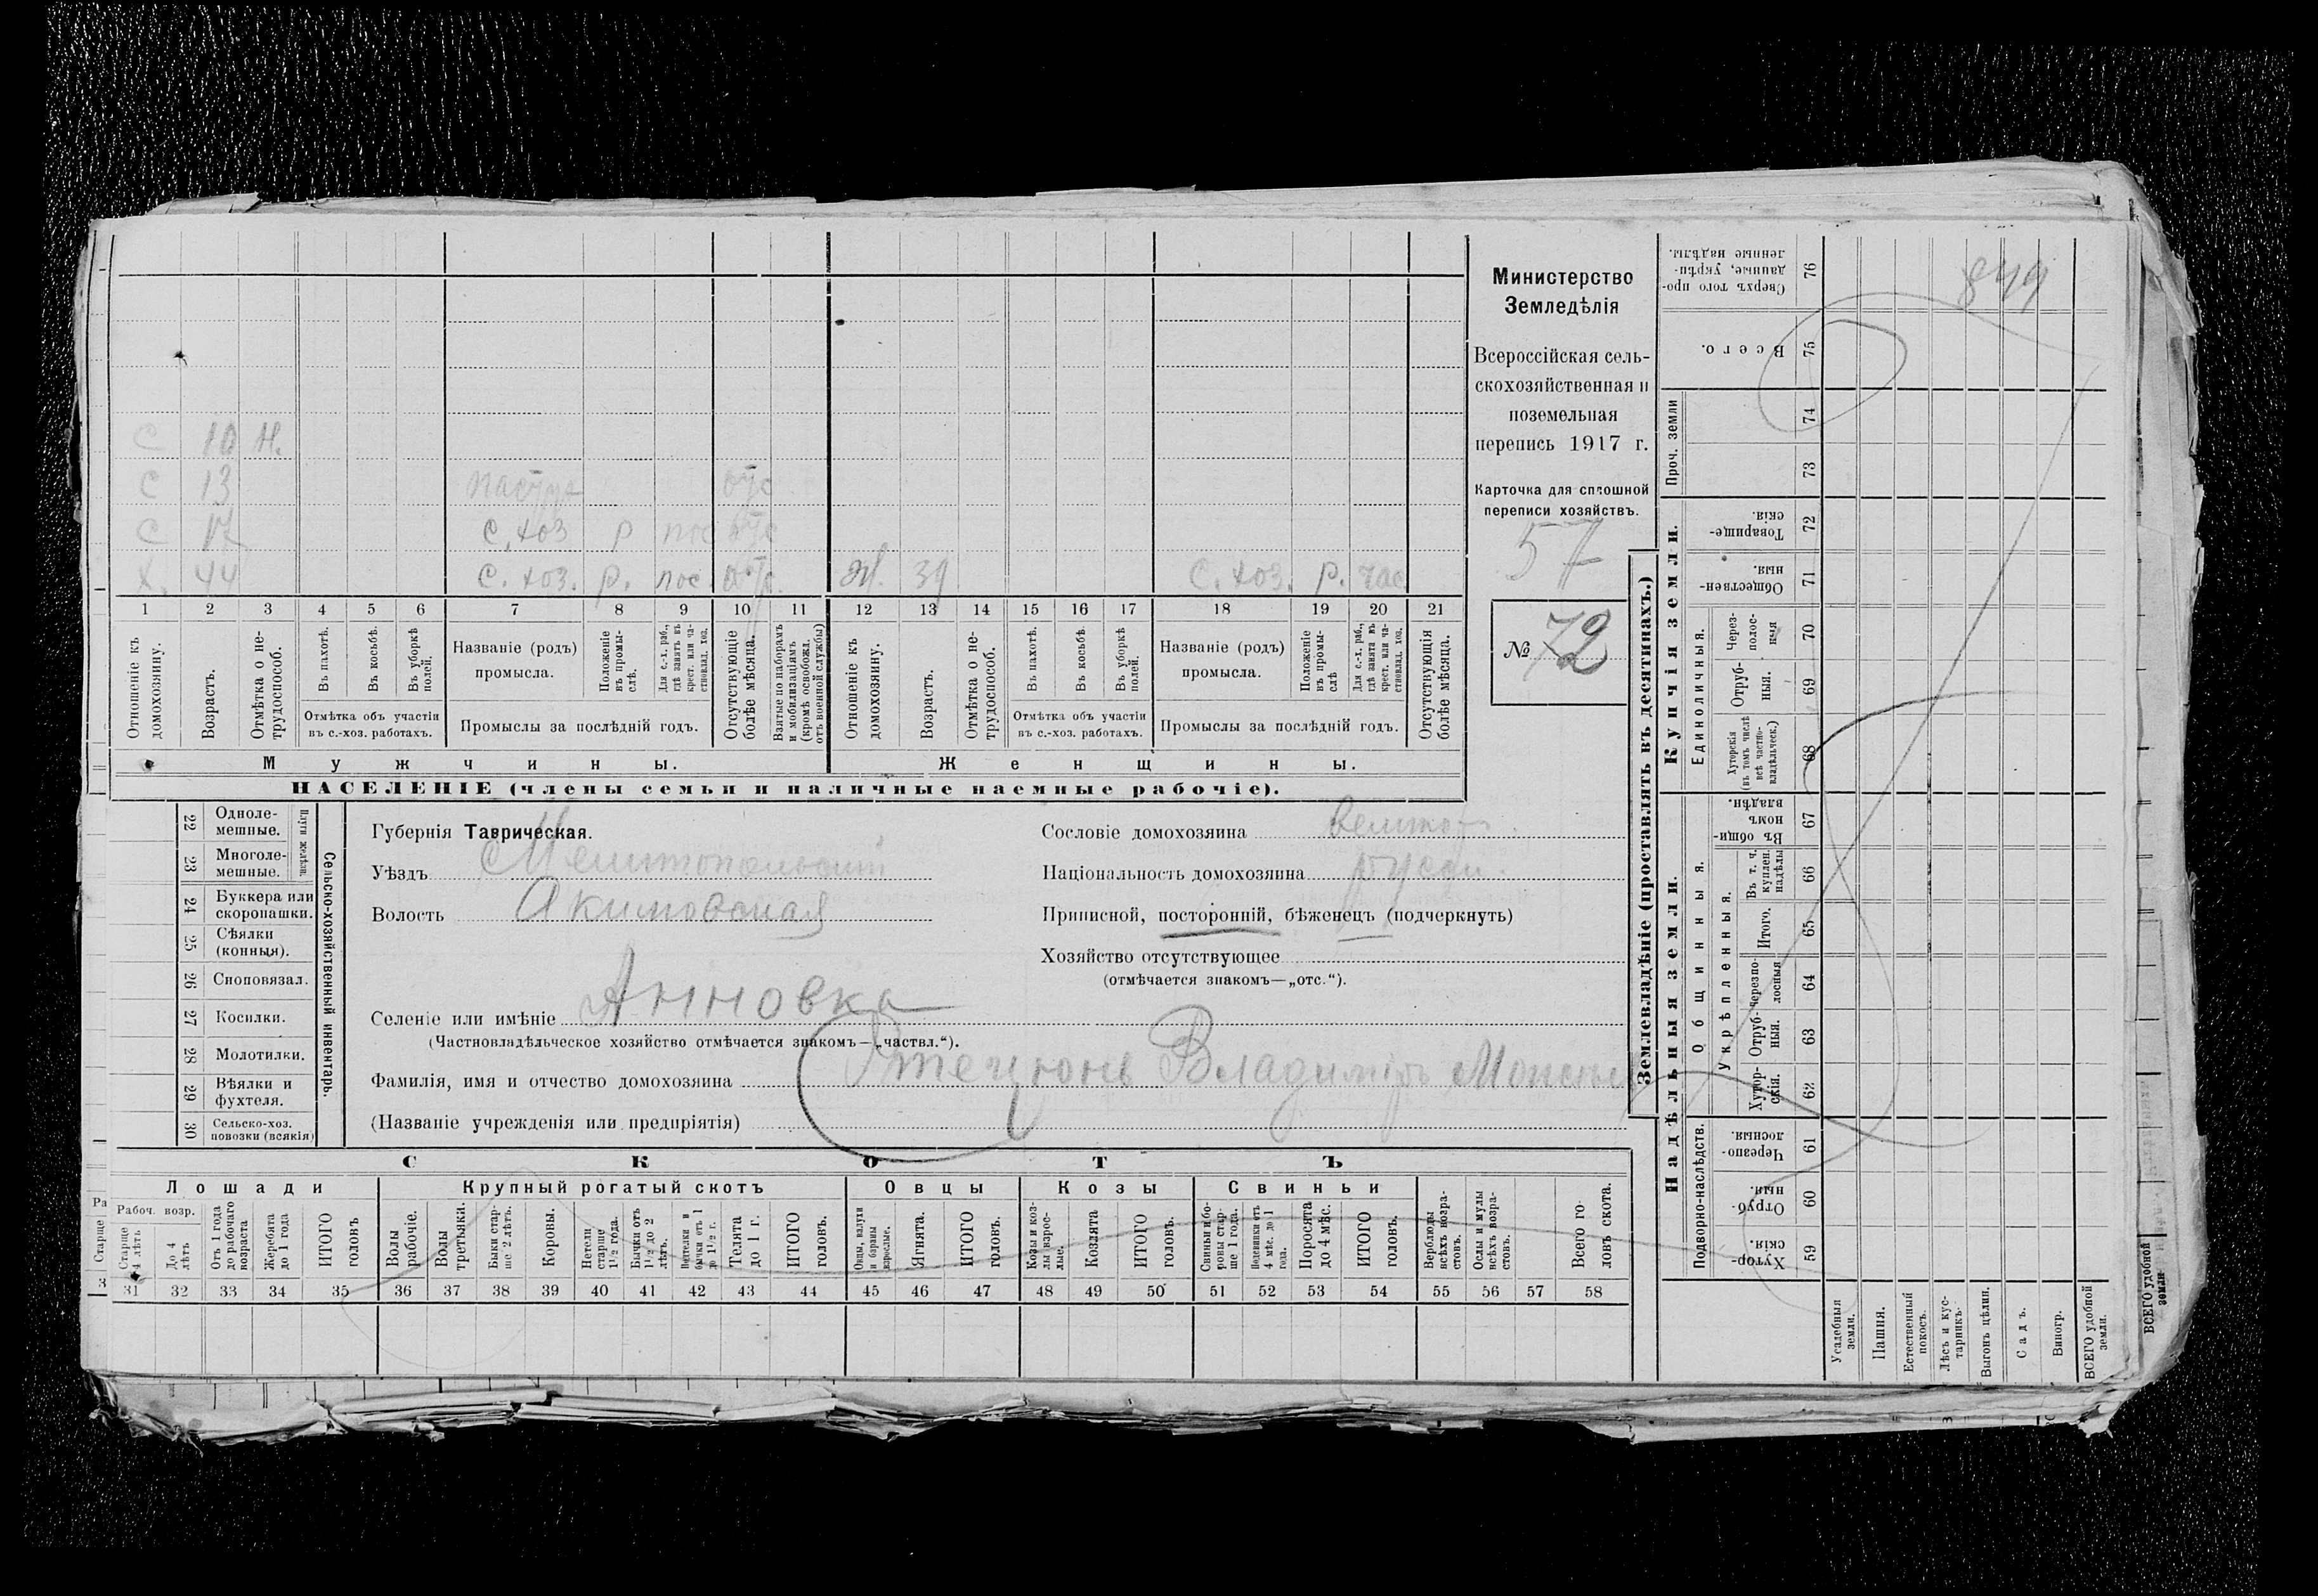 С 10 Н.
С 13 пастух отс
С 17 с. хоз р пос отс
Х. 44 с. хоз. р. пос. отс. Ж. 39 с. хоз. р. час
1 2 3 4 5 6 7 8 9 10 11 12 13 14 15 16 17 18 19 20 21
Отношеніе къ домохозяину.
Возрастъ.
Отмѣтка о не-трудоспособ.
Въ пахотѣ.
Въ косьбѣ.
Въ уборкѣ полей.
Отмѣтка объ участіи
въ с.-хоз. работахъ.
Названіе (родъ)
промысла.
Положеніе въ промы-слѣ.
Для с.-х. раб., гдѣ занятъ въ крест. или ча-стновлад. хоз.
Промыслы за послѣдній годъ.
Отсутствующіе болѣе мѣсяца.
Взятые по наборамъ и мобилизаціямъ (кромѣ освобожд. отъ военной службы)
Отношеніе къ домохозяину.
Возрастъ.
Отмѣтка о не-трудоспособ.
Въ пахотѣ.
Въ косьбѣ.
Въ уборкѣ полей.
Отмѣтка объ участіи
въ с.-хоз. работахъ.
Названіе (родъ)
промысла.
Положеніе въ промы-слѣ
Для с.-х. раб., гдѣ занята въ крест. или ча-стновлад. хоз.
Промыслы за послѣдній годъ.
Отсутствующія болѣе мѣсяца.
Мужчины. Женщины.
НАСЕЛЕНІЕ (члены семьи и наличные наемные рабочіе).
Министерство
Земледѣлія
Всероссійская сель-
скохозяйственная и
поземельная
перепись 1917 г.
Карточка для сплошной
переписи хозяйствъ.
57
№ 72
22 Одноле-мешные.
23 Многоле-мешные.
Плуги желѣзн.
24 Буккера или скоропашки.
25 Сѣялки (конныя).
26 Сноповязал.
27 Косилки.
28 Молотилки.
29 Вѣялки и фухтеля.
30 Сельско-хоз. повозки (всякія)
Сельско-хозяйственный инвентарь.
Губернія Таврическая.
Уѣздъ Мелитопольскій
Волость Акимовская
Селеніе или имѣніе Анновка
(Частновладѣльческое хозяйство отмѣчается знакомъ—„частвл.“).
Фамилія, имя и отчество домохозяина Владиміръ
(Названіе учрежденія или предпріятія)
Сословіе домохозяина
Національность домохозяина русск.
Приписной, посторонній, бѣженецъ (подчеркнуть)
Хозяйство отсутствующее
(отмѣчается знакомъ—„отс.“).
СКОТЪ
Лошади Крупный рогатый скотъ Овцы Козы Свиньи
Рабоч. возр.
Старше 4 лѣтъ
До 4 лѣтъ
Отъ 1 года до рабочаго возраста
Жеребята до 1 года
ИТОГО головъ
Волы рабочіе.
Волы третьяки.
Быки стар-ше 2 лѣтъ.
Коровы.
Нетели старше 1½ года.
Бычки отъ 1½ до 2 лѣтъ.
Бычки отъ 1 до 1½ г.
Телята до 1 г.
ИТОГО головъ.
Овцы, валухи и бараны взрослые.
Ягнята.
ИТОГО головъ.
Козы и коз-лы взрос-лые.
Козлята
ИТОГО головъ.
Свиньи и бо-ровы стар-ше 1 года.
Подсвинки отъ 4 мѣс. до 1 года.
Поросята до 4 мѣс.
ИТОГО головъ.
Верблюды всѣхъ возра-стовъ.
Ослы и мулы всѣхъ возра-стовъ.
Всего го-ловъ скота.
31 32 33 34 35 36 37 38 39 40 41 42 43 44 45 46 47 48 49 50 51 52 53 54 55 56 57 58
Землевладѣніе (проставлять въ десятинахъ.)
Надѣльныя земли. Купчія земли. Проч. земли
Подворно-наслѣдств.
Общинныя.
Укрѣпленныя.
Единоличныя.
Хутор-скія. 59
Отруб-ныя. 60
Черезпо-лосныя. 61
Хутор-скія. 62
Отруб-ныя. 63
Черезпо-лосныя 64
Итого. 65
Въ т. ч. куплен. надѣлы 66
Въ общин-номъ владѣн. 67
Хуторскія (въ томъ числѣ всѣ частно-владѣльческ.) 68
Отруб-ныя. 69
Через-полос-ныя 70
Обществен-ныя. 71
Товарище-скія. 72
73
74
Всего. 75
Сверхъ того про-данные, укрѣп-ленные надѣлы. 76
849
Усадебныя земли.
Пашня.
Естественный покосъ.
Лѣсъ и кус-тарникъ.
Выгонъ цѣлин.
Садъ.
Виногр.
ВСЕГО удобной земли.
ВСЕГО удобной земли